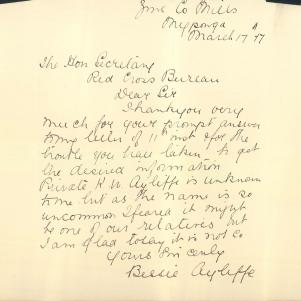 Jme Co Mills
Myponga
March 17 17
The Hon Secretary
Red Cross Bureau
Dear Sir
Thankyou very
much for your prompt answer
to my letter of 11th inst & for the
trouble you have taken to get
the desired information
Private K W Ayliffe is unknown
to me but as the name is so
uncommon I feared it might
be one of our relatives, but
I am glad today it is not so
Yours Sincerely
Bessie Ayliffe